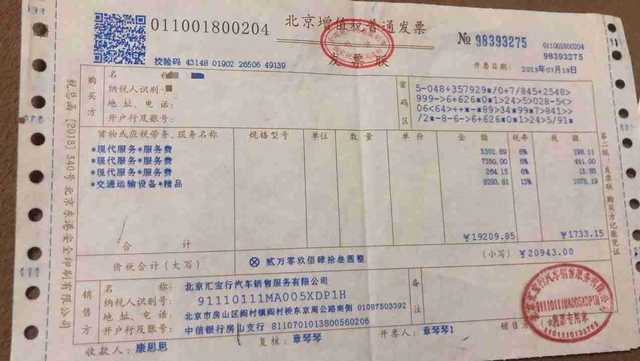 011001800204
北京增值税普通发票
发票联
№ 98393275
011001800204
98393275
校验码 43148 01902 26506 49139
开票日期：2019年07月19日
税总函[2018]540号北京东港安全印刷有限公司
购买方
名 称：
纳税人识别号：
地址、电话：
开户行及账号：
密码区
5-048+357929*/0+7/845+2548>
999->6+626*0*1>24>5>028-5<>
06<64/>+++-*-89>34*99<7/841>>
/2*-8-6-6>6+626*0*1>24>5/91*
货物或应税劳务、服务名称 规格型号 单位 数量 单价 金额 税率 税额
*现代服务*服务费 3301.89 6% 198.11
*现代服务*服务费 7350.00 6% 441.00
*现代服务*服务费 264.15 6% 15.85
*交通运输设备*精品 8293.81 13% 1078.19
合计 ￥19209.85 ￥1733.15
价税合计（大写） ⊗ 贰万零玖佰肆拾叁圆整 （小写）￥20943.00
销售方
名 称：北京汇宝行汽车销售服务有限公司
纳税人识别号：91110111MA005XDP1H
地址、电话：北京市房山区阎村镇阎村桥东京周公路南侧 01087503392
开户行及账号：中信银行房山支行 8110701013800560206
备注
收款人：康思思 复核：章琴琴 开票人：章琴琴1 销售方：
第二联：发票联 购买方记账凭证
北京汇宝行汽车销售服务有限公司
91110111MA005XDP1H
发票专用章